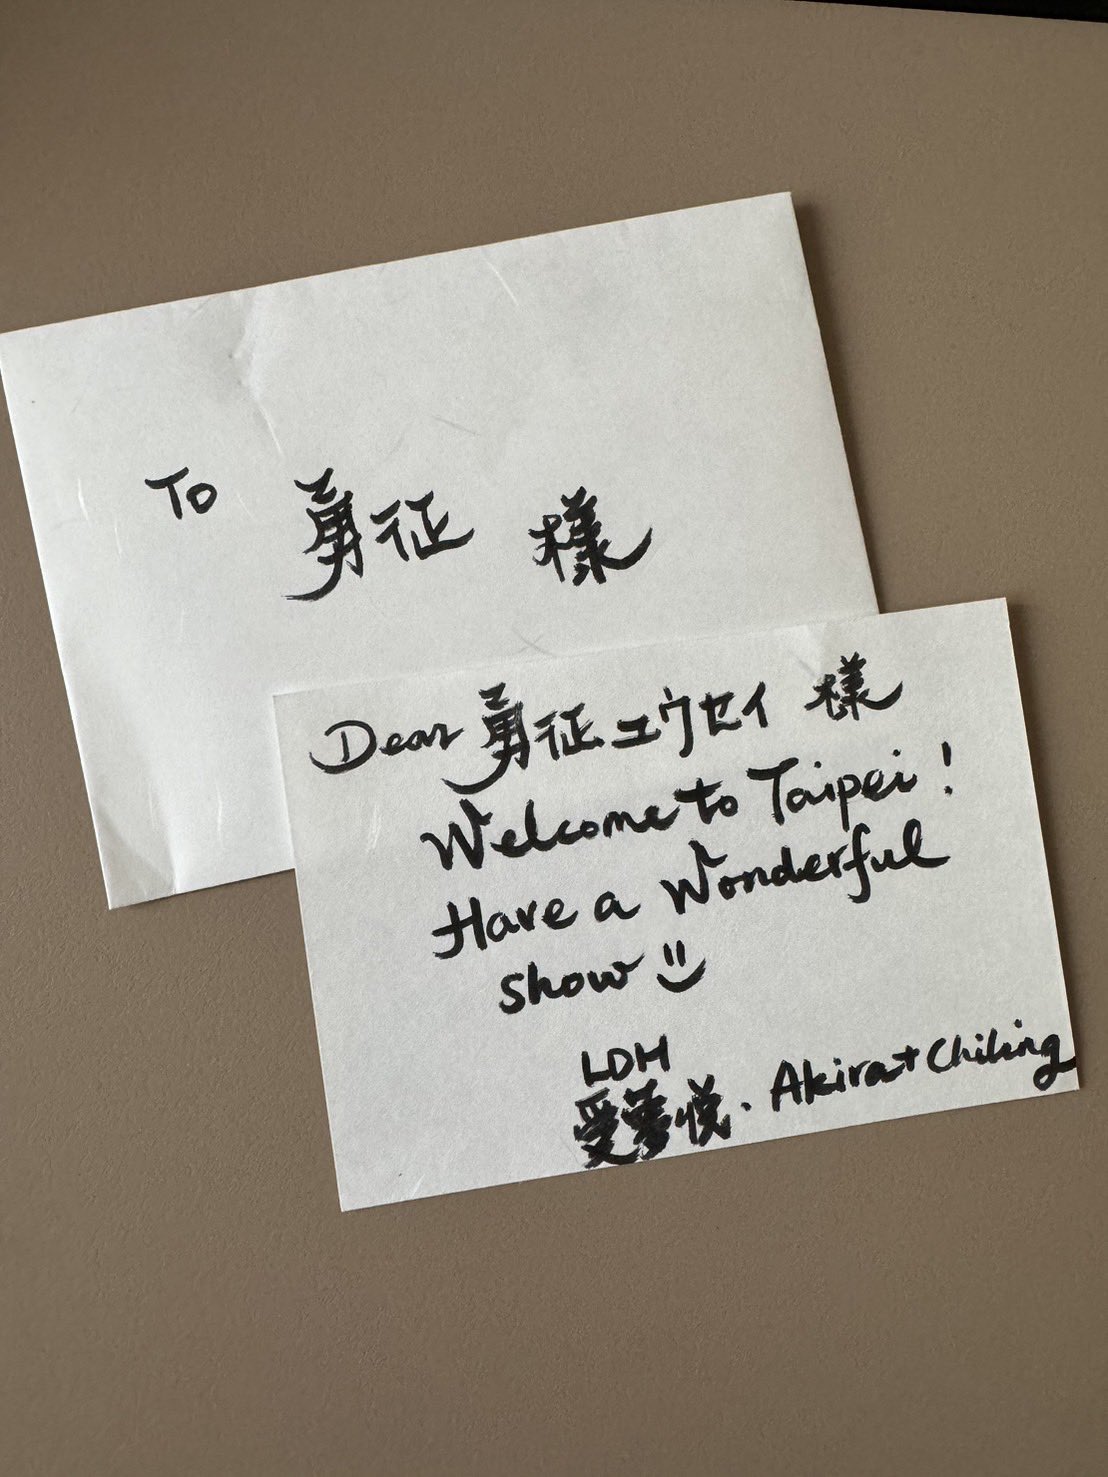 To 勇征 様
Dear 勇征 ユウセイ 様
Welcome to Taipei!
Have a Wonderful
show
LDH
愛夢悦. Akira+Chiling